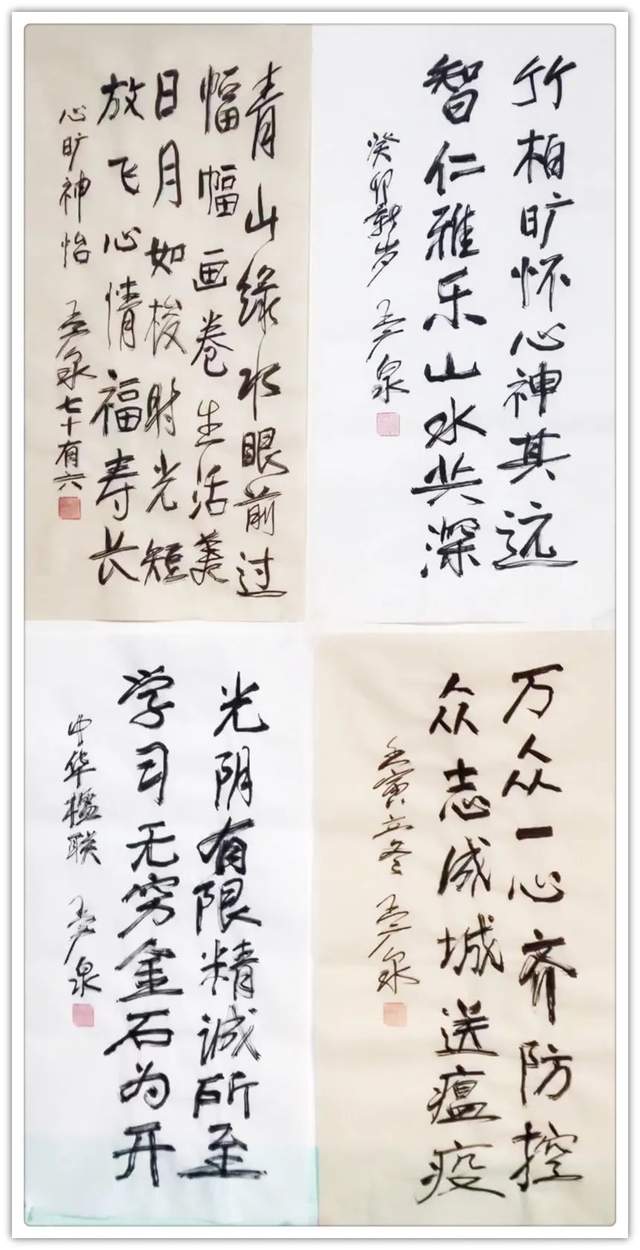 竹柏旷怀心神其远
智仁雅乐山水共深
癸卯新岁 泉
青山绿水眼前过
幅幅画卷生活美
日月如梭时光短
放飞心情福寿长
心旷神怡 泉七十有六
万众一心齐防控
众志成城送瘟疫
壬寅立冬 泉
光阴有限精诚所至
学习无穷金石为开
中华楹联 泉